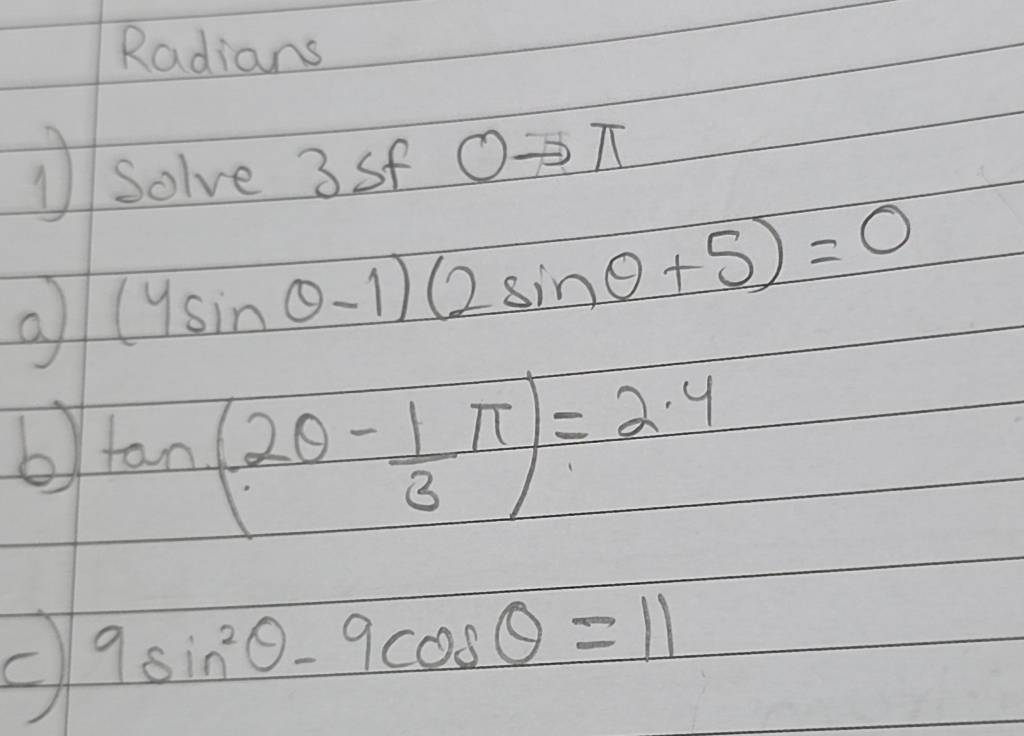 Radians
1) Solve 3sf 0→π
a) (4sinθ-1)(2sinθ+5)=0
b) tan(2θ - 1/3 π) = 2.4
c) 9sin²θ - 9cosθ = 11